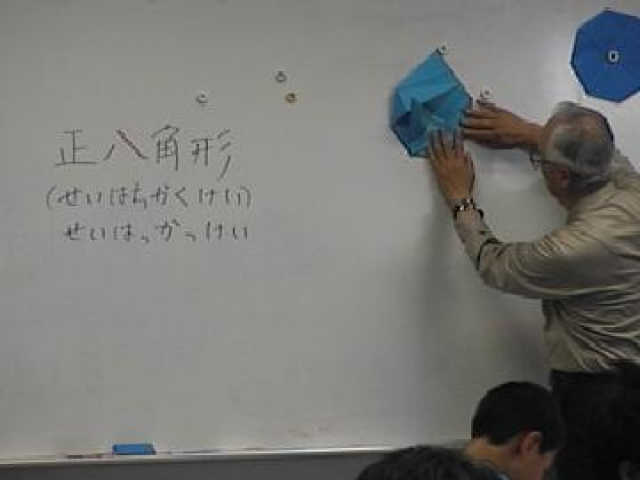 正八角形
(せいはちかくけい)
せいはっかっけい